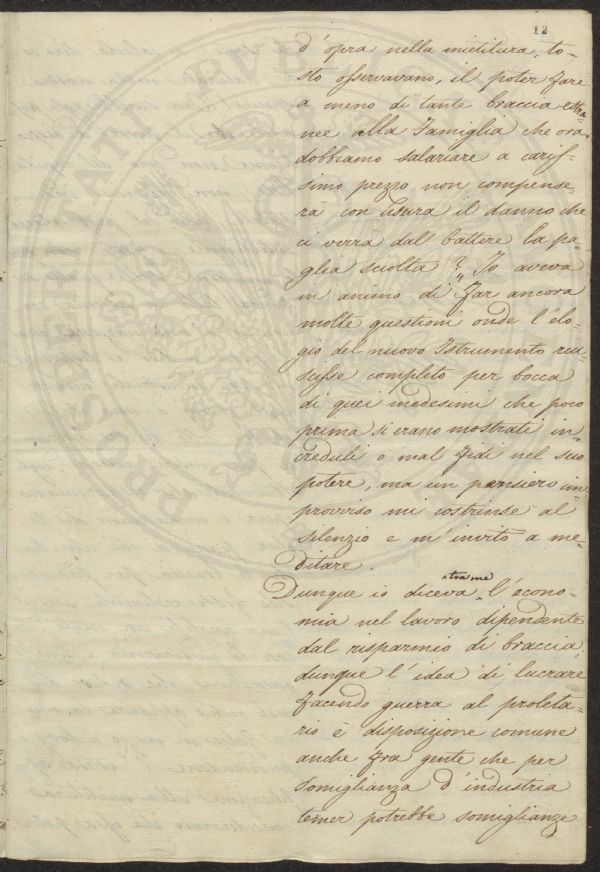 12
d'opra nella mietitura, to-
sto osservavano, il poter fare
a meno di tante braccia estra
nee alla Famiglia che ora
dobbiamo salariare a caris-
simo prezzo non compense-
rà con usura il danno che
ci verrà dal battere la pa-
glia sciolta? „ Io aveva
in animo di far ancora
molte questioni onde l'elo-
gio del nuovo Istrumento riu-
scisse completo per bocca
di quei medesimi che poco
prima si erano mostrati in-
creduli o mal fidi nel suo
potere, ma un pensiero im-
provviso mi costrinse al
silenzio e m'invitò a me-
ditare.
Dunque io diceva tra me l'econo-
mia nel lavoro dipendente
dal risparmio di braccia,
dunque l'idea di lucrare
facendo guerra al proleta-
rio è disposizione comune
anche fra gente che per
somiglianza d'industria
temer potrebbe somiglianze
PROSPERITATI PUBLICAE